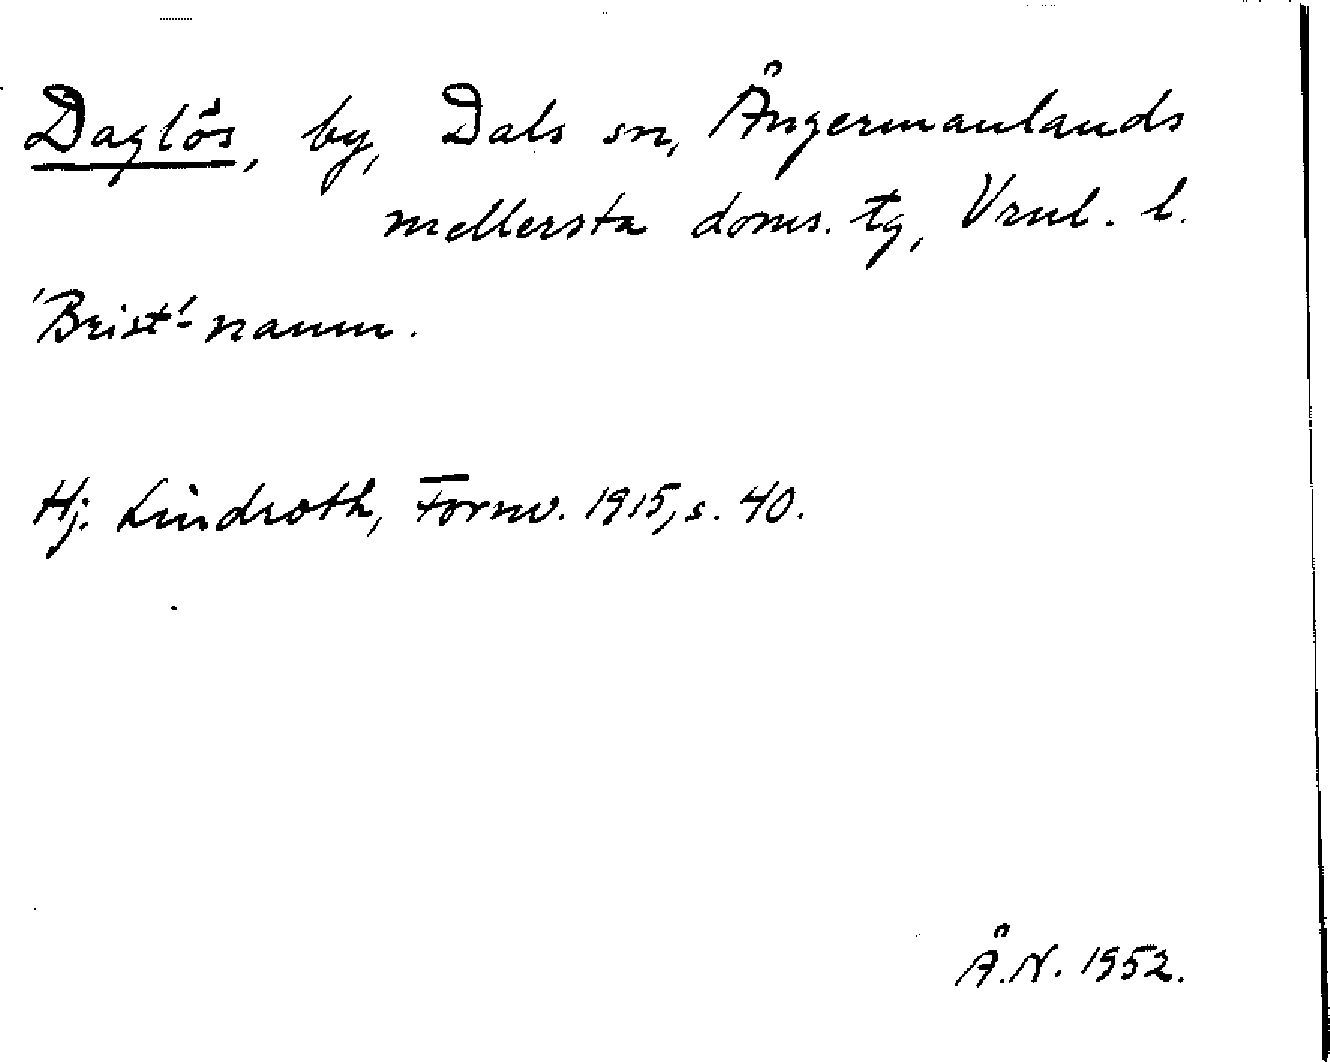 Daglös, by, Dals sn, Ångermanlands
mellersta doms. tg, Vrnl. l.
'Brist'-namn.
Hj. Lindroth, Fornv. 1915, s. 40.
Å.N. 1952.